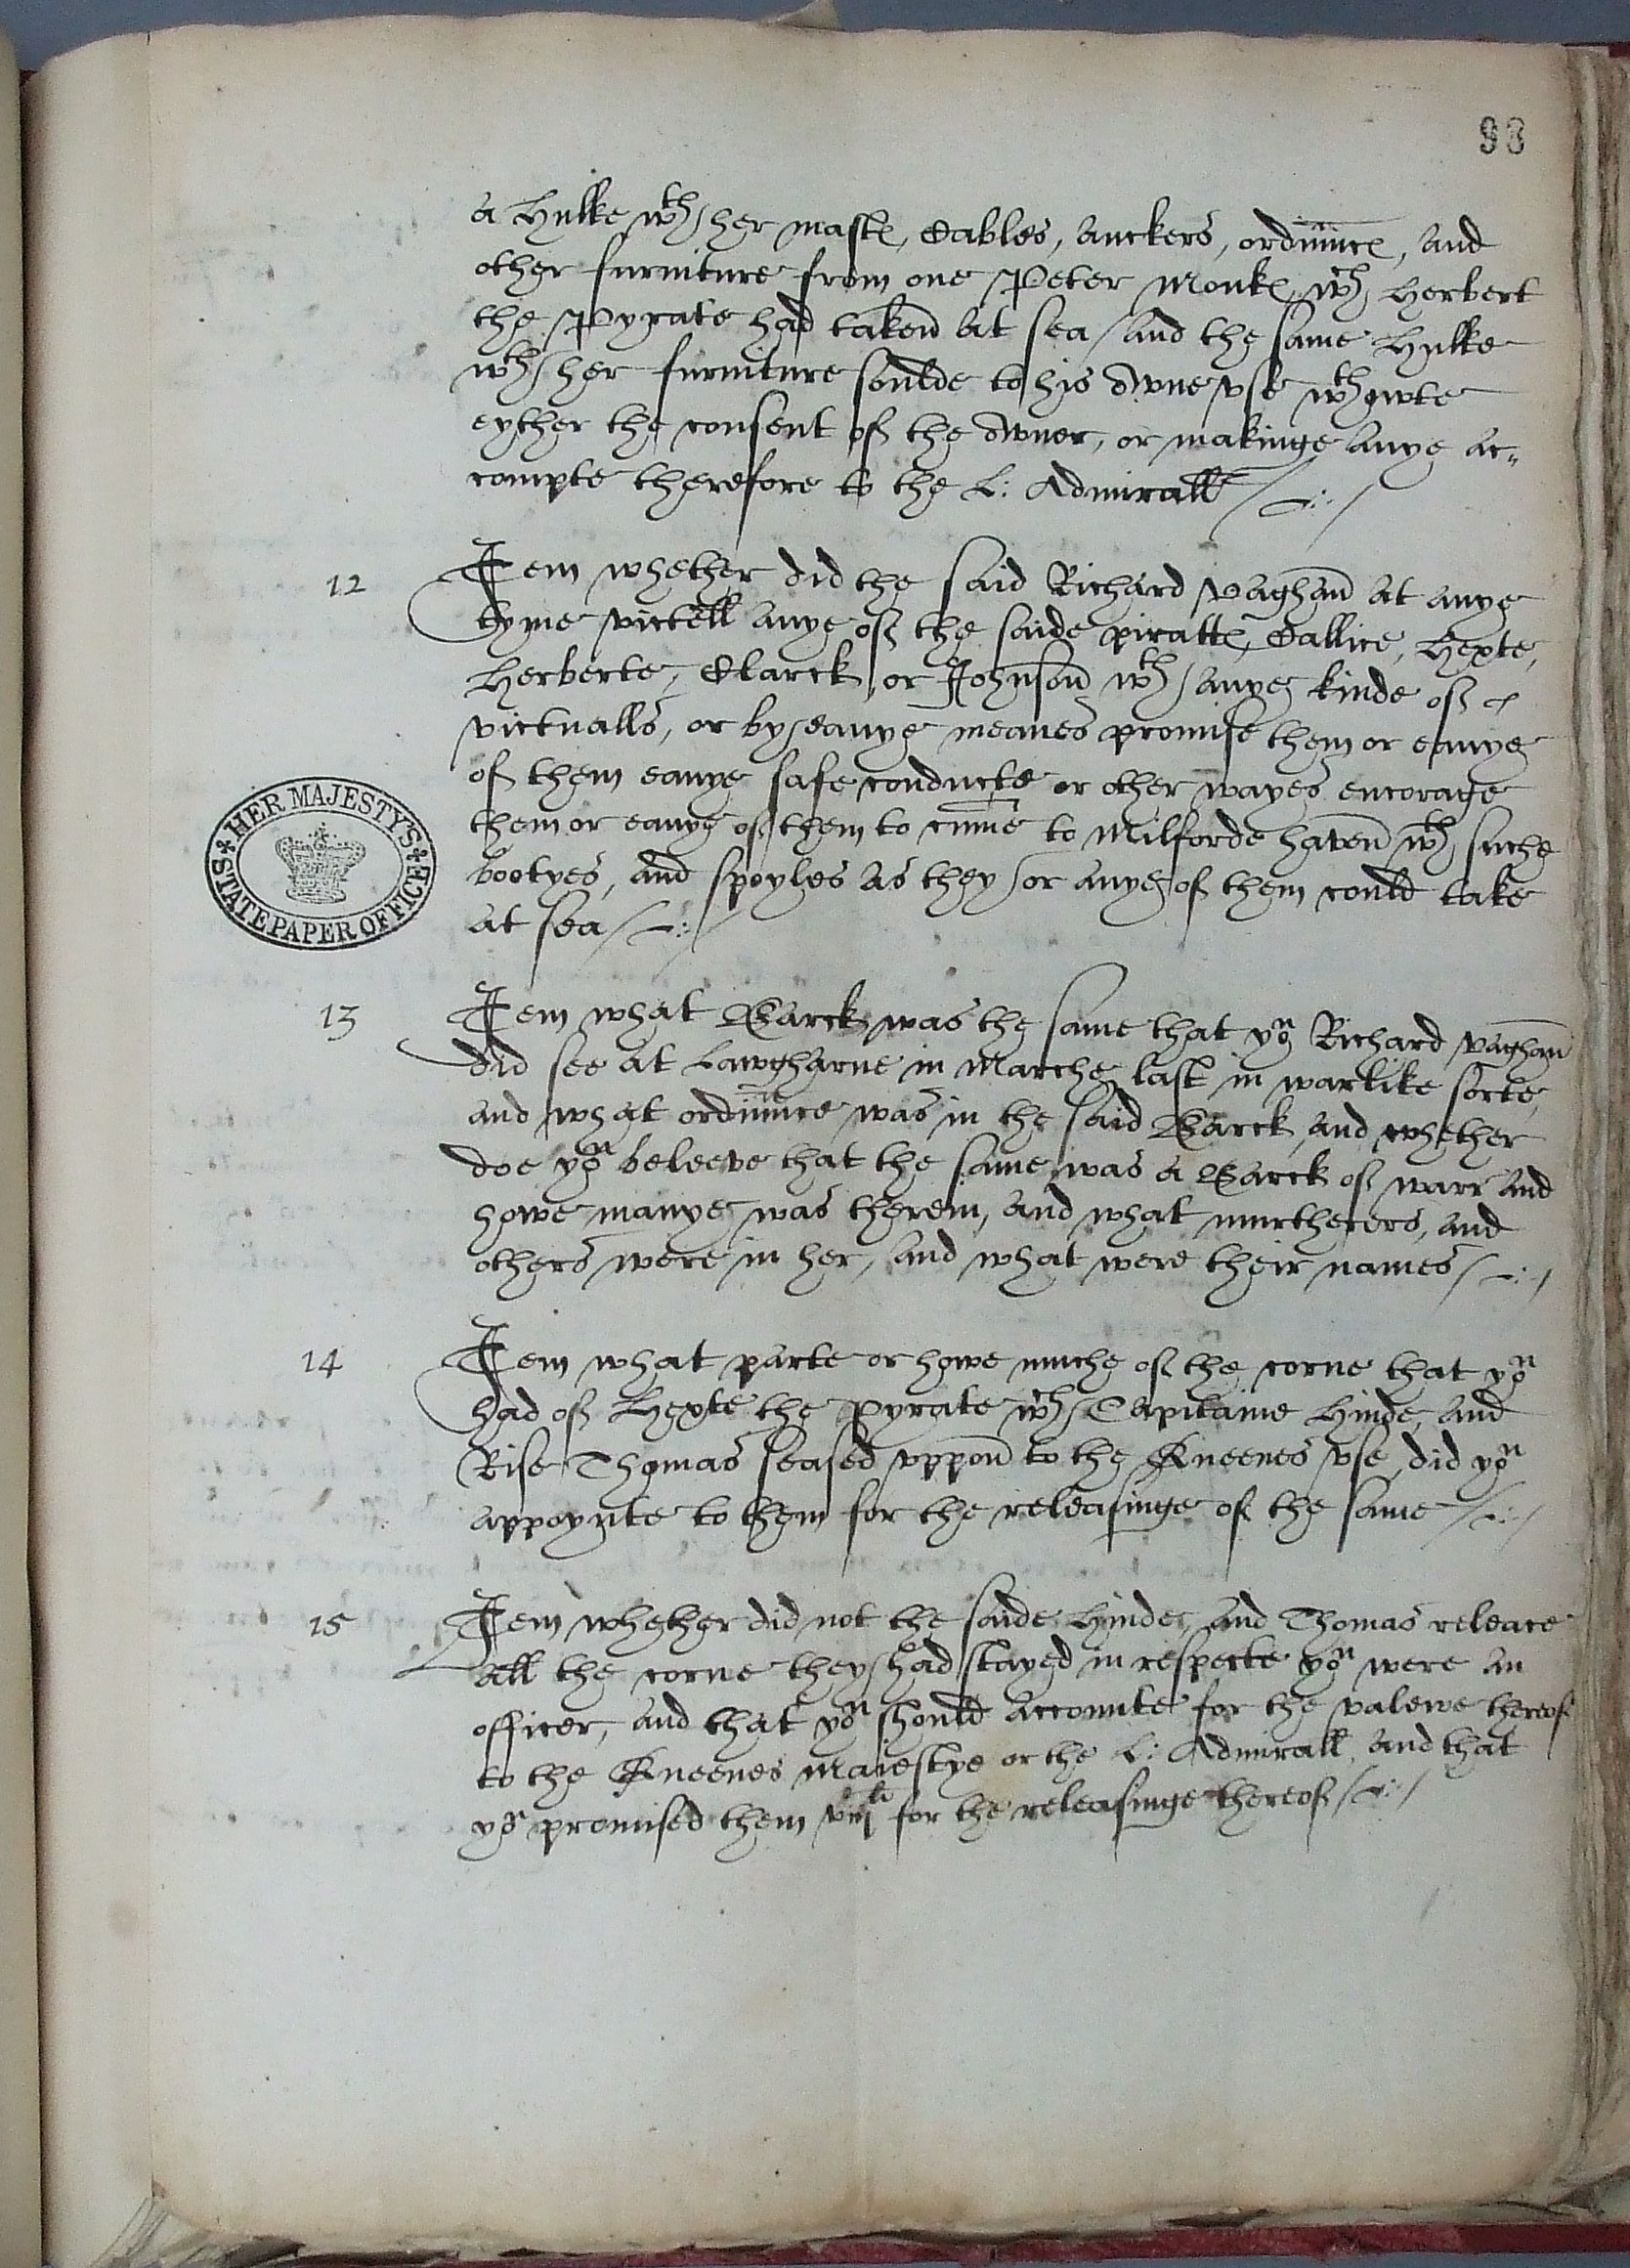 93
a Hulke wth her mastes, Cables, anckers, ordinance, and
other furniture from one Peter Monke, wch Herbert
the Pyrate had taken at sea / and the same Hulke
wth her furniture soulde to his owne vse wthowte
eyther the consent of the owner, or makinge anye ac„
compte therefore to the L: Admirall /
12 Item whether did the said Richard vaghan at anye
tyme victell anye of the saide pirattes, Callice, Hexte,
Herberte, Clarck, or Johnson wth anye kinde of
victualls, or by eanye meanes promise them or eanye
of them eanye safe conducte or other wayes encorage
them or eanye of them to cume to Milforde haven wth suche
bootyes, and spoyles as they or anye of them could take
at sea /
HER MAJESTY'S STATE PAPER OFFICE
13 Item what Barck was the same that yow Richard vaghan
did see at Lawgharne in Marche last in warlike sorte,
and what ordinance was in the said Barck, and whether
doe yow beleeve that the same was a Barck of warr and
howe manye was therein, and what murtherers, and
others were in her, and what were their names /
14 Item what parte or howe muche of the corne that yow
had of Hexte the Pyrate wch Capitaine Hinde, and
Rise Thomas seased vppon to the Queenes vse, did yow
appoynte to them for the releasinge of the same /
15 Item whether did not the saide Hinde, and Thomas releace
all the corne they had stayed in respecte yow were an
officer, and that yow should accounte for the valewe thereof
to the Queenes Maiestye or the L: Admirall, and that
yow promised them viijli for the releasinge thereof /